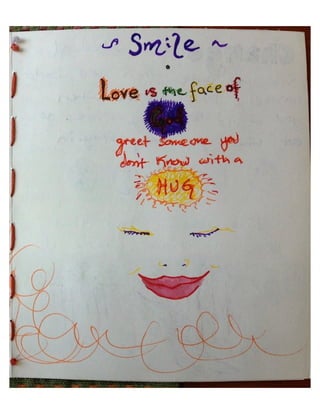 ~ Smile ~
Love is the face of
God
greet someone you
don't know with a
HUG